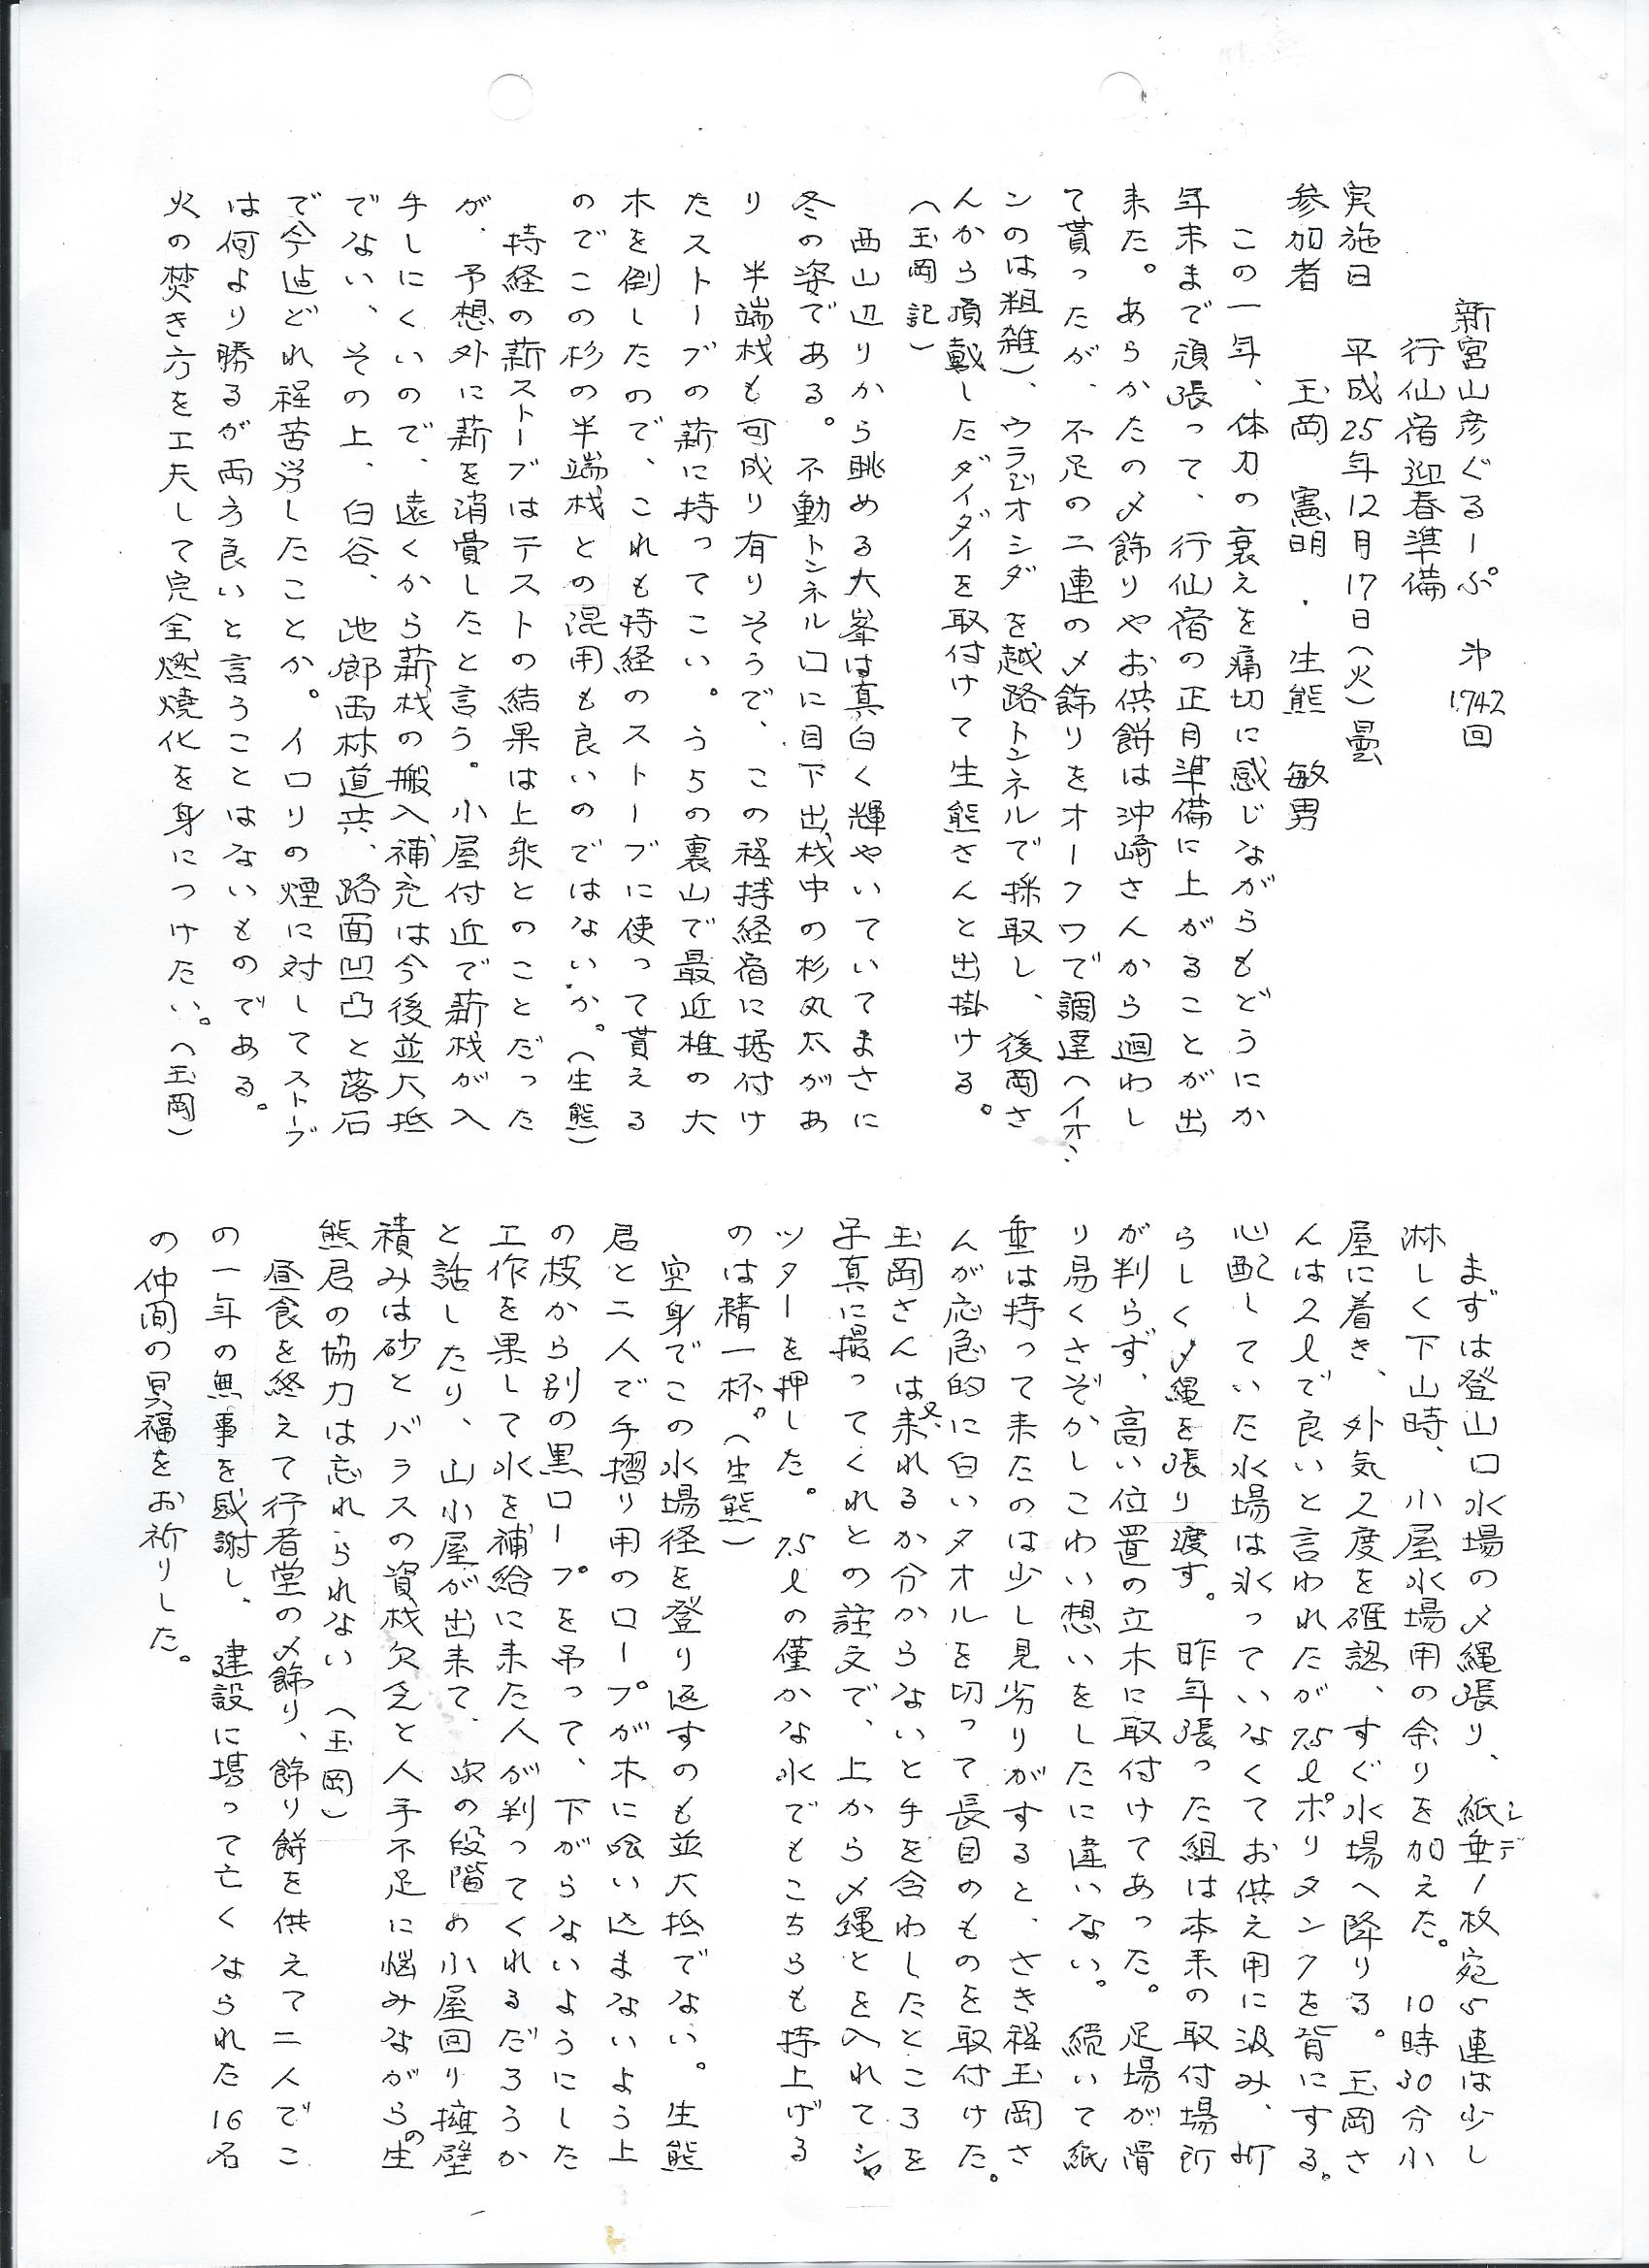 新宮山彦ぐるーぷ 㐧1,742回
行仙宿迎春準備
実施日 平成25年12月17日(火)曇
参加者 玉岡 憲明 . 生熊 敏男
この一年、体力の衰えを痛切に感じながらもどうにか
年末まで頑張って、行仙宿の正月準備に上がることが出
来た。あらかたの〆飾りやお供餅は沖﨑さんから廻わし
て貰ったが、不足の二連の〆飾りをオークワで調達(イオ
ンのは粗雑)、ウラジオシダを越路トンネルで採取し、後岡さ
んから頂戴したダイダイを取付けて生熊さんと出掛ける。
(玉岡 記)
西山辺りから眺める大峯は真白く輝やいていてまさに
冬の姿である。不動トンネル口に目下出材中の杉丸太があ
り 半端材も可成り有りそうで、この程持経宿に据付け
たストーブの薪に持ってこい。うちの裏山で最近椎の大
木を倒したので、これも持経のストーブに使って貰える
のでこの杉の半端材との混用も良いのではないか。(生熊)
持経の薪ストーブはテストの結果は上乗とのことだった
が、予想外に薪を消費したと言う。小屋付近で薪材が入
手しにくいので、遠くから薪材の搬入補充は今後並大抵
でない、その上、白谷、池郷両林道共、路面凹凸と落石
で今迠どれ程苦労したことか。イロリの煙に対してストーブ
は何より勝るが両方良いと言うことはないものである。
火の焚き方を工夫して完全燃焼化を身につけたい。(玉岡)
まずは登山口水場の〆縄張り、紙垂シデ1枚宛5連は少し
淋しく下山時、小屋水場用の余りを加えた。10時30分小
屋に着き、外気2度を確認、すぐ水場へ降りる。玉岡さ
んは2ℓで良いと言われたが7.5ℓポリタンクを背にする。
心配していた水場は氷っていなくてお供え用に汲み、新
らしく〆縄を張り渡す。昨年張った組は本来の取付場所
が判らず、高い位置の立木に取付けてあった。足場が滑
り易くさぞかしこわい想いをしたに違いない。続いて紙
垂は持って来たのは少し見劣りがすると、さき程玉岡さ
んが応急的に白いタオルを切って長目のものを取付けた。
玉岡さんは又、来れるか分からないと手を合わしたところを
写真に撮ってくれとの註文で、上から〆縄とを入れてシャ
ッターを押した。7.5ℓの僅かな水でもこちらも持上げる
のは積一杯。(生熊)
空身でこの水場径を登り返すのも並大抵でない。生熊
君と二人で手摺り用のロープが木に喰い込まないよう上
の枝から別の黒ロープを吊って、下がらないようにした
工作を果して水を補給に来た人が判ってくれるだろうか
と話したり、山小屋が出来て、次の段階の小屋回り擁壁
積みは砂とバラスの資材欠乏と人手不足に悩みながらの生
熊君の協力は忘れられない (玉岡)
昼食を終えて行者堂の〆飾り、飾り餅を供えて二人でこ
の一年の無事を感謝し、建設に携って亡くなられた16名
の仲間の冥福をお祈りした。